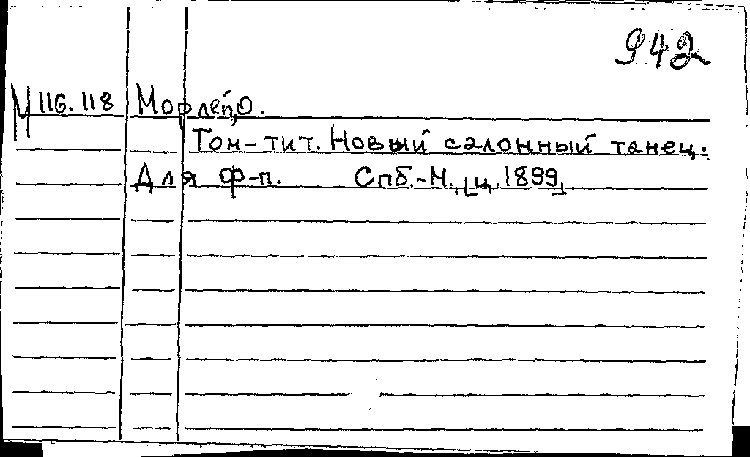 942
М 116.118 Морлей, О.
Том-тит. Новый салонный танец.
Для ф-п. Спб.-М., [ц. 1899]